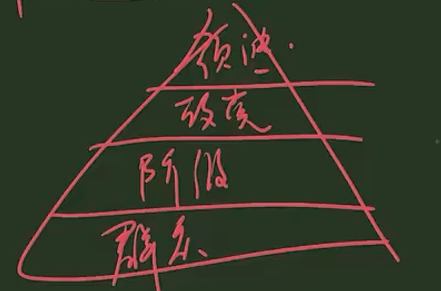 领袖
政党
阶级
群众